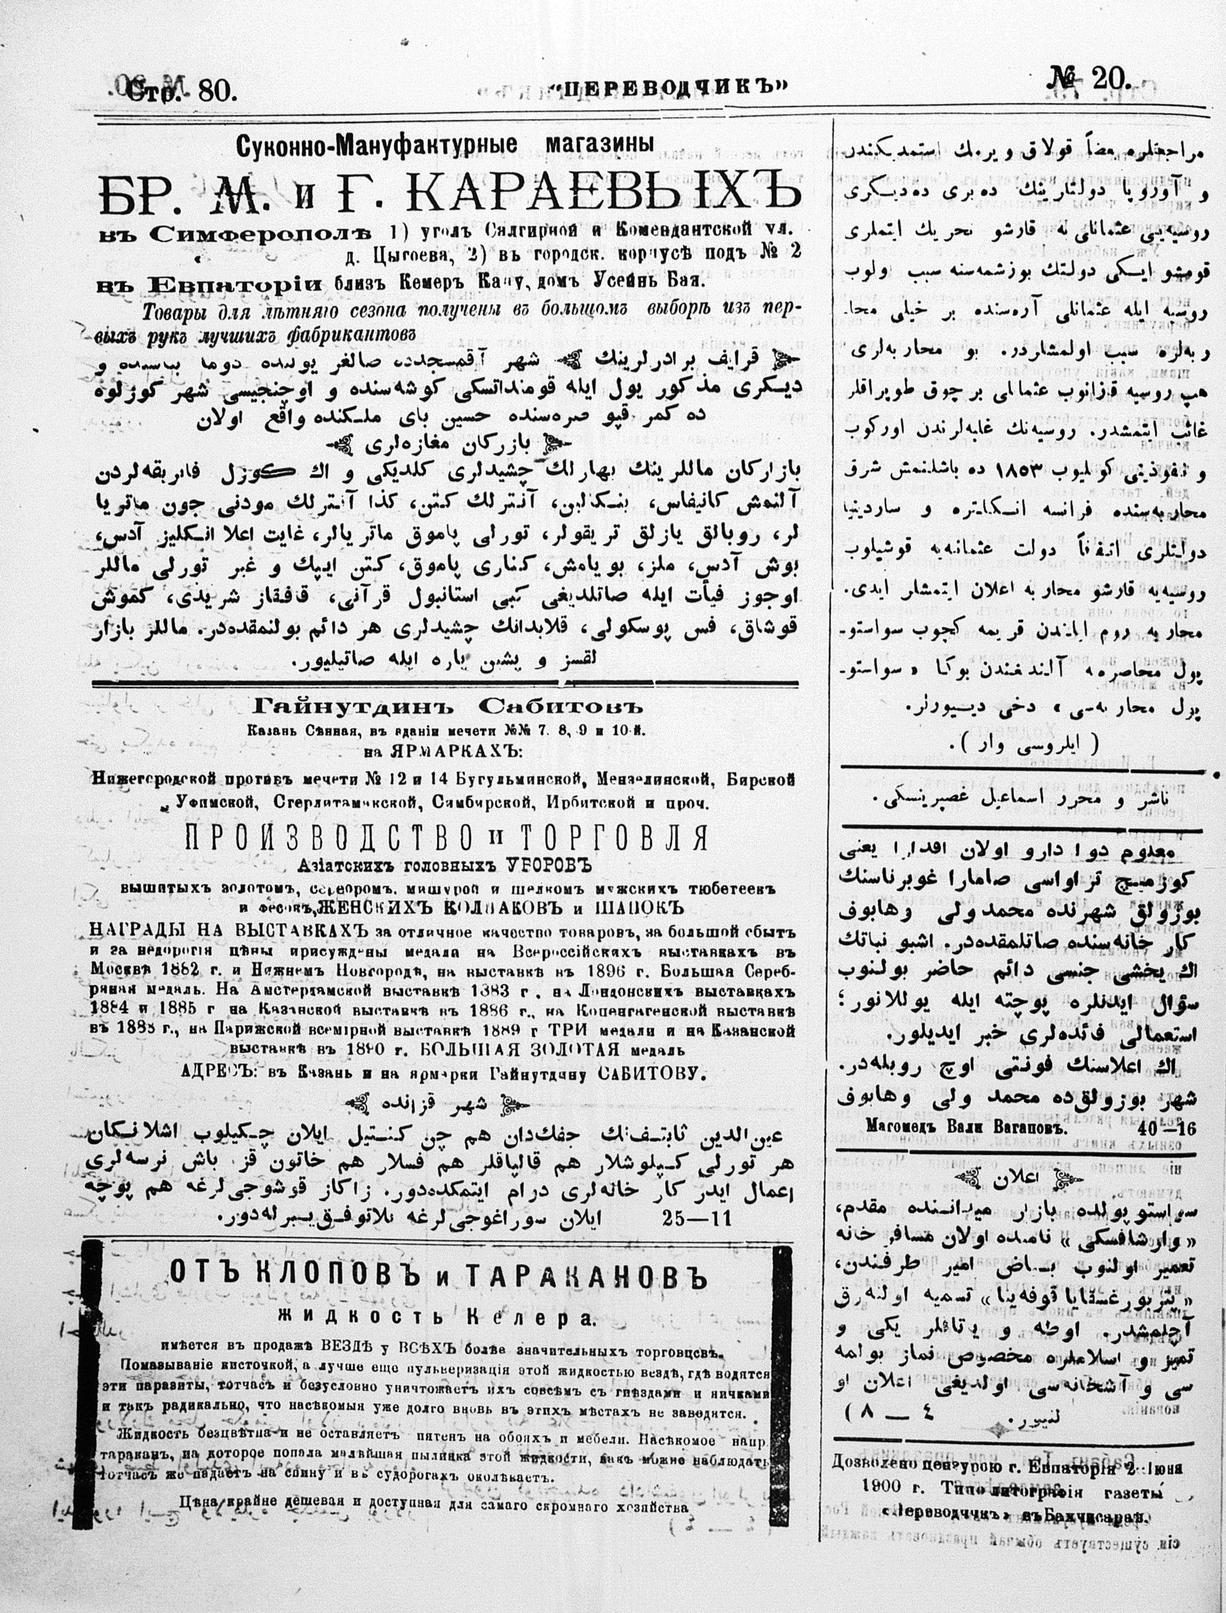 Стр. 80.
"ПЕРЕВОДЧИКЪ"
№ 20.
Суконно-Мануфактурные магазины
БР. М. и Г. КАРАЕВЫХЪ
въ Симферополѣ 1) уголъ Салгирной и Комендантской ул.
д. Цыгоева, 2) въ городск. корпусѣ подъ № 2
въ Евпаторіи близъ Кемеръ Капу, домъ Усеинъ Бая.
Товары для лѣтняго сезона получены въ большомъ выборѣ изъ пер-
выхъ рукъ лучшихъ фабрикантовъ
قرایف برادرلرینك شهر آقمسجدده صالغر یولنده دوما بناسنده و
دیكری مذكور یول ایله قومنداتسكی كوشه‌سنده و اوچنجیسی شهر كوزلوه
ده كمر قپو صره‌سنده حسین بای ملكنده واقع اولان
بازركان مغازه‌لری
بازاركان ماللرینك بهارلك چشیدلری كلدیكی و اك كوزل فابریقه‌لردن
آلنمش كانیفاس، بنكالین، آنترلك كتن، كذا آنترلك مودنی چون ماتریا
لر، روبالق یازلق تریقولر، تورلی پاموق ماتریالر، غایت اعلا انكلیز آدس،
بوش آدس، ملز، بویامش، كناری پاموق، كتن ایپك و غیر تورلی ماللر
اوجوز فیأت ایله صاتلدیغی كبی استانبول قرآنی، قافقاز شریدی، كموش
قوشاق، فس پوسكولی، قلابدانك چشیدلری هر دائم بولنمقده‌در. ماللز بازار
لقسز و پشین پاره ایله صاتیلیور.
Гайнутдинъ Сабитовъ
Казань Сѣнная, въ зданіи мечети №№ 7. 8, 9 и 10-й.
на ЯРМАРКАХЪ:
Нижегородской противъ мечети № 12 и 14 Бугульминской, Мензелинской, Бирской
Уфимской, Стерлитамакской, Симбирской, Ирбитской и проч.
ПРОИЗВОДСТВО и ТОРГОВЛЯ
Азіатскихъ головныхъ УБОРОВЪ
вышитыхъ золотомъ, серебромъ, мишурой и шелкомъ мужскихъ тюбетеевъ
и фесокъ, ЖЕНСКИХЪ КОЛПАКОВЪ и ШАПОКЪ
НАГРАДЫ НА ВЫСТАВКАХЪ за отличное качество товаровъ, за большой сбытъ
и за недорогія цѣны присуждены медали на Всероссійскихъ выставкахъ въ
Москвѣ 1882 г. и Нижнемъ Новгородѣ, на выставкѣ въ 1896 г. Большая Сереб-
ряная медаль. На Амстердамской выставкѣ 1883 г., на Лондонскихъ выставкахъ
1884 и 1885 г на Казанской выставкѣ въ 1886 г., на Копенгагенской выставкѣ
въ 1888 г., на Парижской всемірной выставкѣ 1889 г ТРИ медали и на Казанской
выставкѣ въ 1890 г. БОЛЬШАЯ ЗОЛОТАЯ медаль
АДРЕСЪ: въ Казань и на ярмарки Гайнутдину САБИТОВУ.
شهر قزانده
عین‌الدین ثابتفنك جفك‌دان هم چن كنتیل ایلان چكیلوب اشلانكان
هر تورلی كپلوشلار هم قالپاقلر هم فسلار هم خاتون قز باش نرسه‌لری
اعمال ایدر كار خانه‌لری درام ایتمكده‌دور. زاكاز قوشوجی‌لرغه هم پوچه
ایلان سوراغوجی‌لرغه نلاتوفق یبرله‌دور. 25—11
ОТЪ КЛОПОВЪ и ТАРАКАНОВЪ
жидкость Келера.
имѣется въ продажѣ ВЕЗДѢ у ВСѢХЪ болѣе значительныхъ торговцевъ.
Помазываніе кисточкой, а лучше еще пульверизація этой жидкостью вездѣ, гдѣ водятся
эти паразиты, тотчасъ и безусловно уничтожаетъ ихъ совсѣмъ съ гнѣздами и яичками
и такъ радикально, что насѣкомыя уже долго вновь въ этихъ мѣстахъ не заводятся.
Жидкость безцвѣтна и не оставляетъ пятенъ на обояхъ и мебели. Насѣкомое напр.
тараканъ, на которое попала малѣйшая пылинка этой жидкости, какъ можно наблюдать
тотчасъ же падаетъ на спину и въ судорогахъ околѣваетъ.
Цѣна крайне дешевая и доступная для самаго скромнаго хозяйства
مراجعتلره بعضاً قولاق ویرمك استمدیكندن
و آوروپا دولتلرینك ده‌بری ده‌دیكری
روسیه‌یی عثمانلی‌یه قارشو تحریك ایتملری
قومشو ایكی دولتك بوزشمه‌سنه سبب اولوب
روسیه ایله عثمانلی آره‌سنده بر خیلی محا-
ربه‌لره سبب اولمشاردر. بو محاربه‌لری
هپ روسیه قزانوب عثمانلی بر چوق طوپراقلر
غائب ایتمشدر. روسیه‌نك غلبه‌لرندن اوركوب
و نفوذینی كوبلیوب ١٨٥٣ ده باشلنمش شرق
محاربه‌سنده فرانسه انكلتره و ساردینیا
دولتلری اتفاقاً دولت عثمانیه‌یه قوشیلوب
روسیه‌یه قارشو محاربه اعلان ایتمشلر ایدی.
محاربه روم ایلندن قریمه كچوب سواستو-
پول محاصره‌یه آلندیغندن بوكا «سواستو-
پول محاربه‌سی» دخی دییورلر.
( ایلروسی وار ).
ناشر و محرر اسماعیل غصپرینسكی.
معلوم دوا دارو اولان افدرا یعنی
كوزمیچ تراواسی صامارا غوبرناسنك
بوزولق شهرنده محمد ولی وهابوف
كار خانه‌سنده صاتلمقده‌در. اشبو نباتك
اك یخشی جنسی دائم حاضر بولنوب
سؤال ایدنلره پوچته ایله یوللانور؛
استعمالی فائده‌لری خبر ایدیلور.
اك اعلاسنك فونتی اوچ روبله‌در.
شهر بوزولق‌ده محمد ولی وهابوف
Магомедъ Вали Вагаповъ. 40—16
اعلان
سواستوپولده بازار میداننده مقدم،
«وارشافسكی» نامنده اولان مسافر خانه
تعمیر اولنوب بیاض امیر طرفندن،
«پتربورغسقایا قوفه‌ینا» تسمیه اولنه‌رق
آچلمشدر. اوطه و یتاقلر یكی و
تمیز و اسلاملره مخصوص نماز بولمه
سی و آشخانه‌سی اولدیغی اعلان او
لنییور. ٤ — ٨ )
Дозволено цензурою г. Евпаторія 2 Іюня
1900 г. Типо литографія газеты
«Переводчикъ» въ Бахчисараѣ.